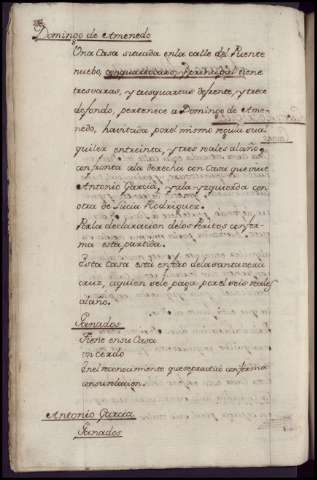 Domingo de Amenedo
Una Casa situada enla calle del Puente
nuebo, con quarto vajo, y principal tiene
tres varas, y tres quartas de frente, y trece
de fondo, pertenece a Domingo de Ame-
nedo, havitada por el mismo regula su a
quiler en treinta, y tres reales al año
confronta ala derecha con Casa que vive
Antonio Garcia, y ala yzquierda con
otra de Lucia Rodriguez.
Por la declaracion delos Peritos confor-
ma esta partida.
Esta Casa esta en foro dela santa vera
cruz, a quien se le paga por el seis reales
al año.
Ganados
Tiene en su Casa
un cerdo
Enel reconocimiento que se practicó conforma
con su relacion.
Antonio Garcia
Ganados